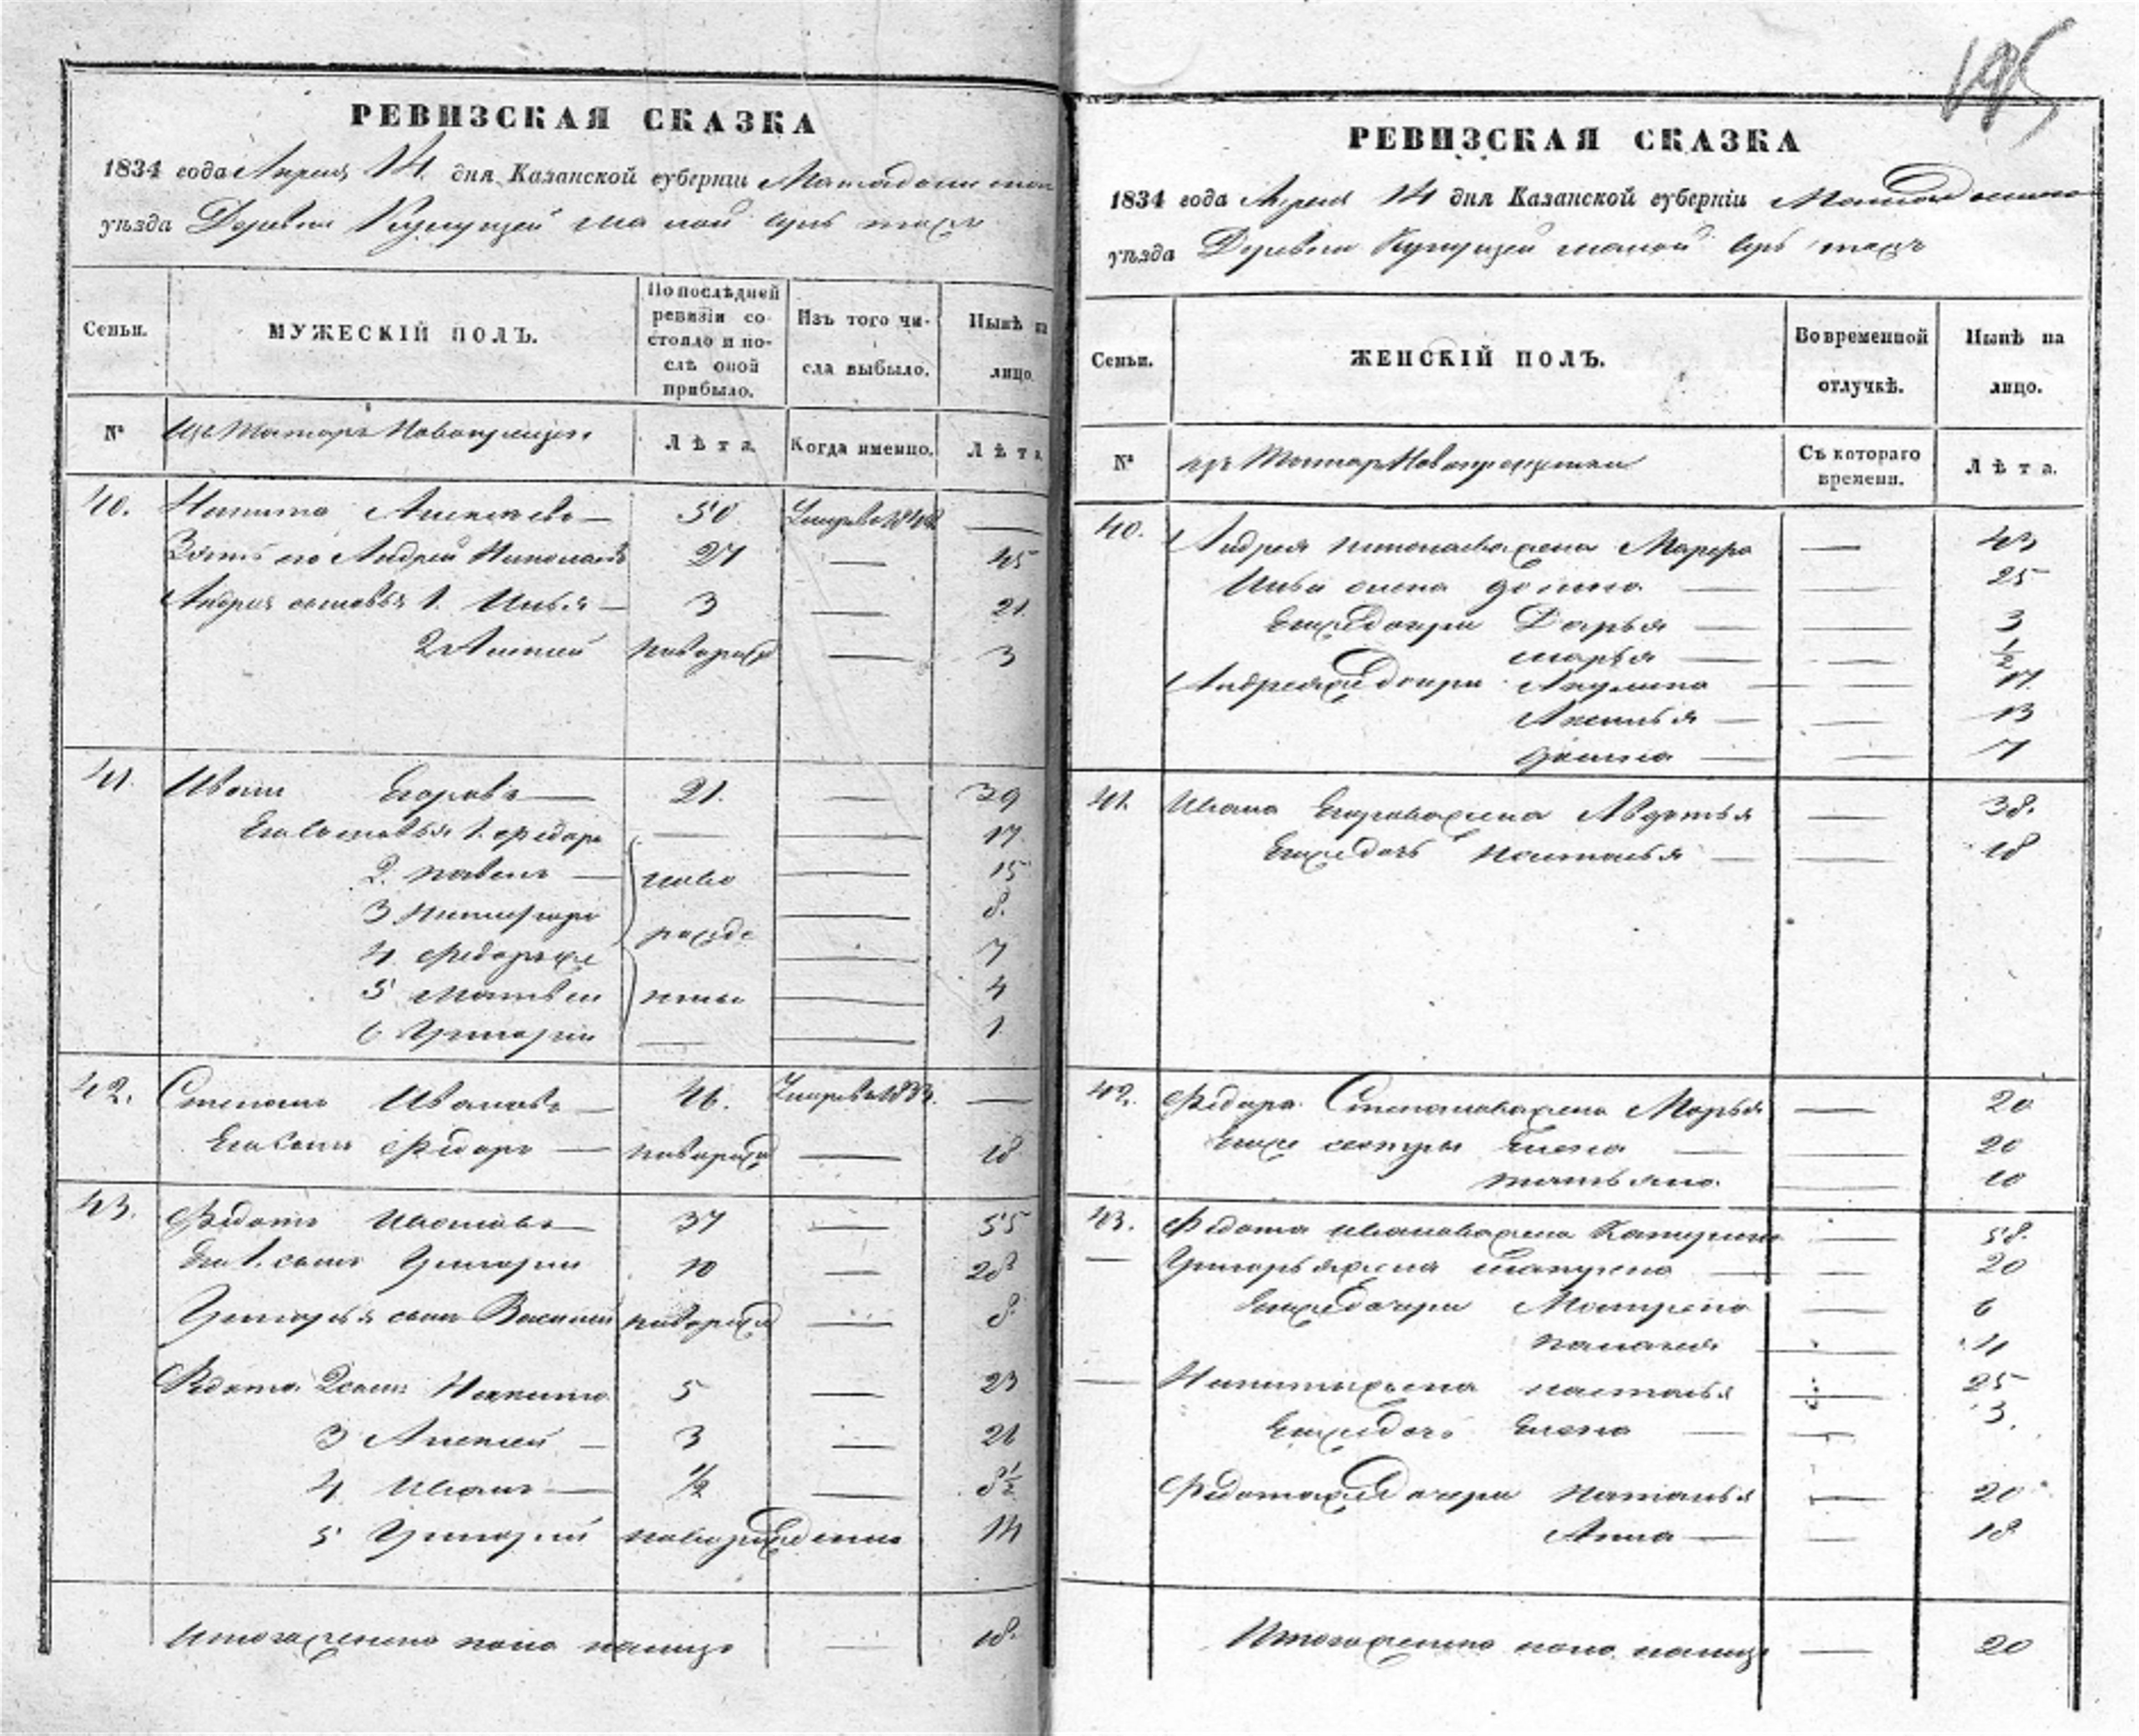 195
РЕВИЗСКАЯ СКАЗКА
1834 года Апреля 14. дня Казанской губерніи
уѣзда Деревни
Семьи.
МУЖЕСКІЙ ПОЛЪ.
По послѣдней ревизіи состояло и послѣ оной прибыло.
Изъ того числа выбыло.
Нынѣ на лицо.
№
Изъ Татаръ Новокрещенъ
Лѣта.
Когда именно.
Лѣта
40. Никита Алексеевъ — 50 Умеръ в 18 —
Зять его Андрей Николаевъ 27 — 45
Андрея сыновья 1. Илья — 3 — 21
2 Алексей новорожд — 3
41. Иванъ Егоровъ — 21. — 39
Его сыновья 1. Федоръ — — 17
2. Павелъ — — 15
3 Никифоръ — 8.
4 Федоръ же — 7
5 Матвей — 4
6 Григорий — — 1
ново
рожде
нные
42. Степанъ Ивановъ — 46. Умеръ в 1833. —
Его сынъ Федоръ — новорожд — 18
43. Федотъ Ивановъ — 37 — 55
Его 1. сынъ Григорий 10 — 28
Григорья сынъ Василий новорожд — 8
Федота 2 сынъ Никита 5 — 23
3 Алексей — 3 — 21
4 Иванъ — 1/2 —
5 Григорий новорожденные 14
Итого мужеска пола налицо — 18.
РЕВИЗСКАЯ СКАЗКА
1834 года Апреля 14 дня Казанской губерніи
уѣзда Деревни
Семьи.
ЖЕНСКІЙ ПОЛЪ.
Во временной отлучкѣ.
Нынѣ на лицо.
№
изъ Татаръ Новокрещенъ
Съ котораго времени.
Лѣта.
40. Андрея Николаева жена Марфа — 43
Ильи жена — — 25
Его же дочери Дарья — — 3
Марья — — 1/2
Андрея же дочери Акулина — — 17
Аксинья — — 13
— — 7
41. Ивана Егорова жена Авдотья — 38.
Его же дочь Наталья — — 18
42. Федора Степанова жена Марья — 20
Его же сестры Елена — — 20
Татьяна — 10
43. Федота Иванова жена Катерина — 58.
— Григорья жена — — 20
Его же дочери Матрена — 6
Палагея — 4
— Никиты жена Наталья — 25
Его же дочь Елена — — 3.
Федота же дочери Наталья — 20
Анна — — 18
Итого женска пола налицо — 20